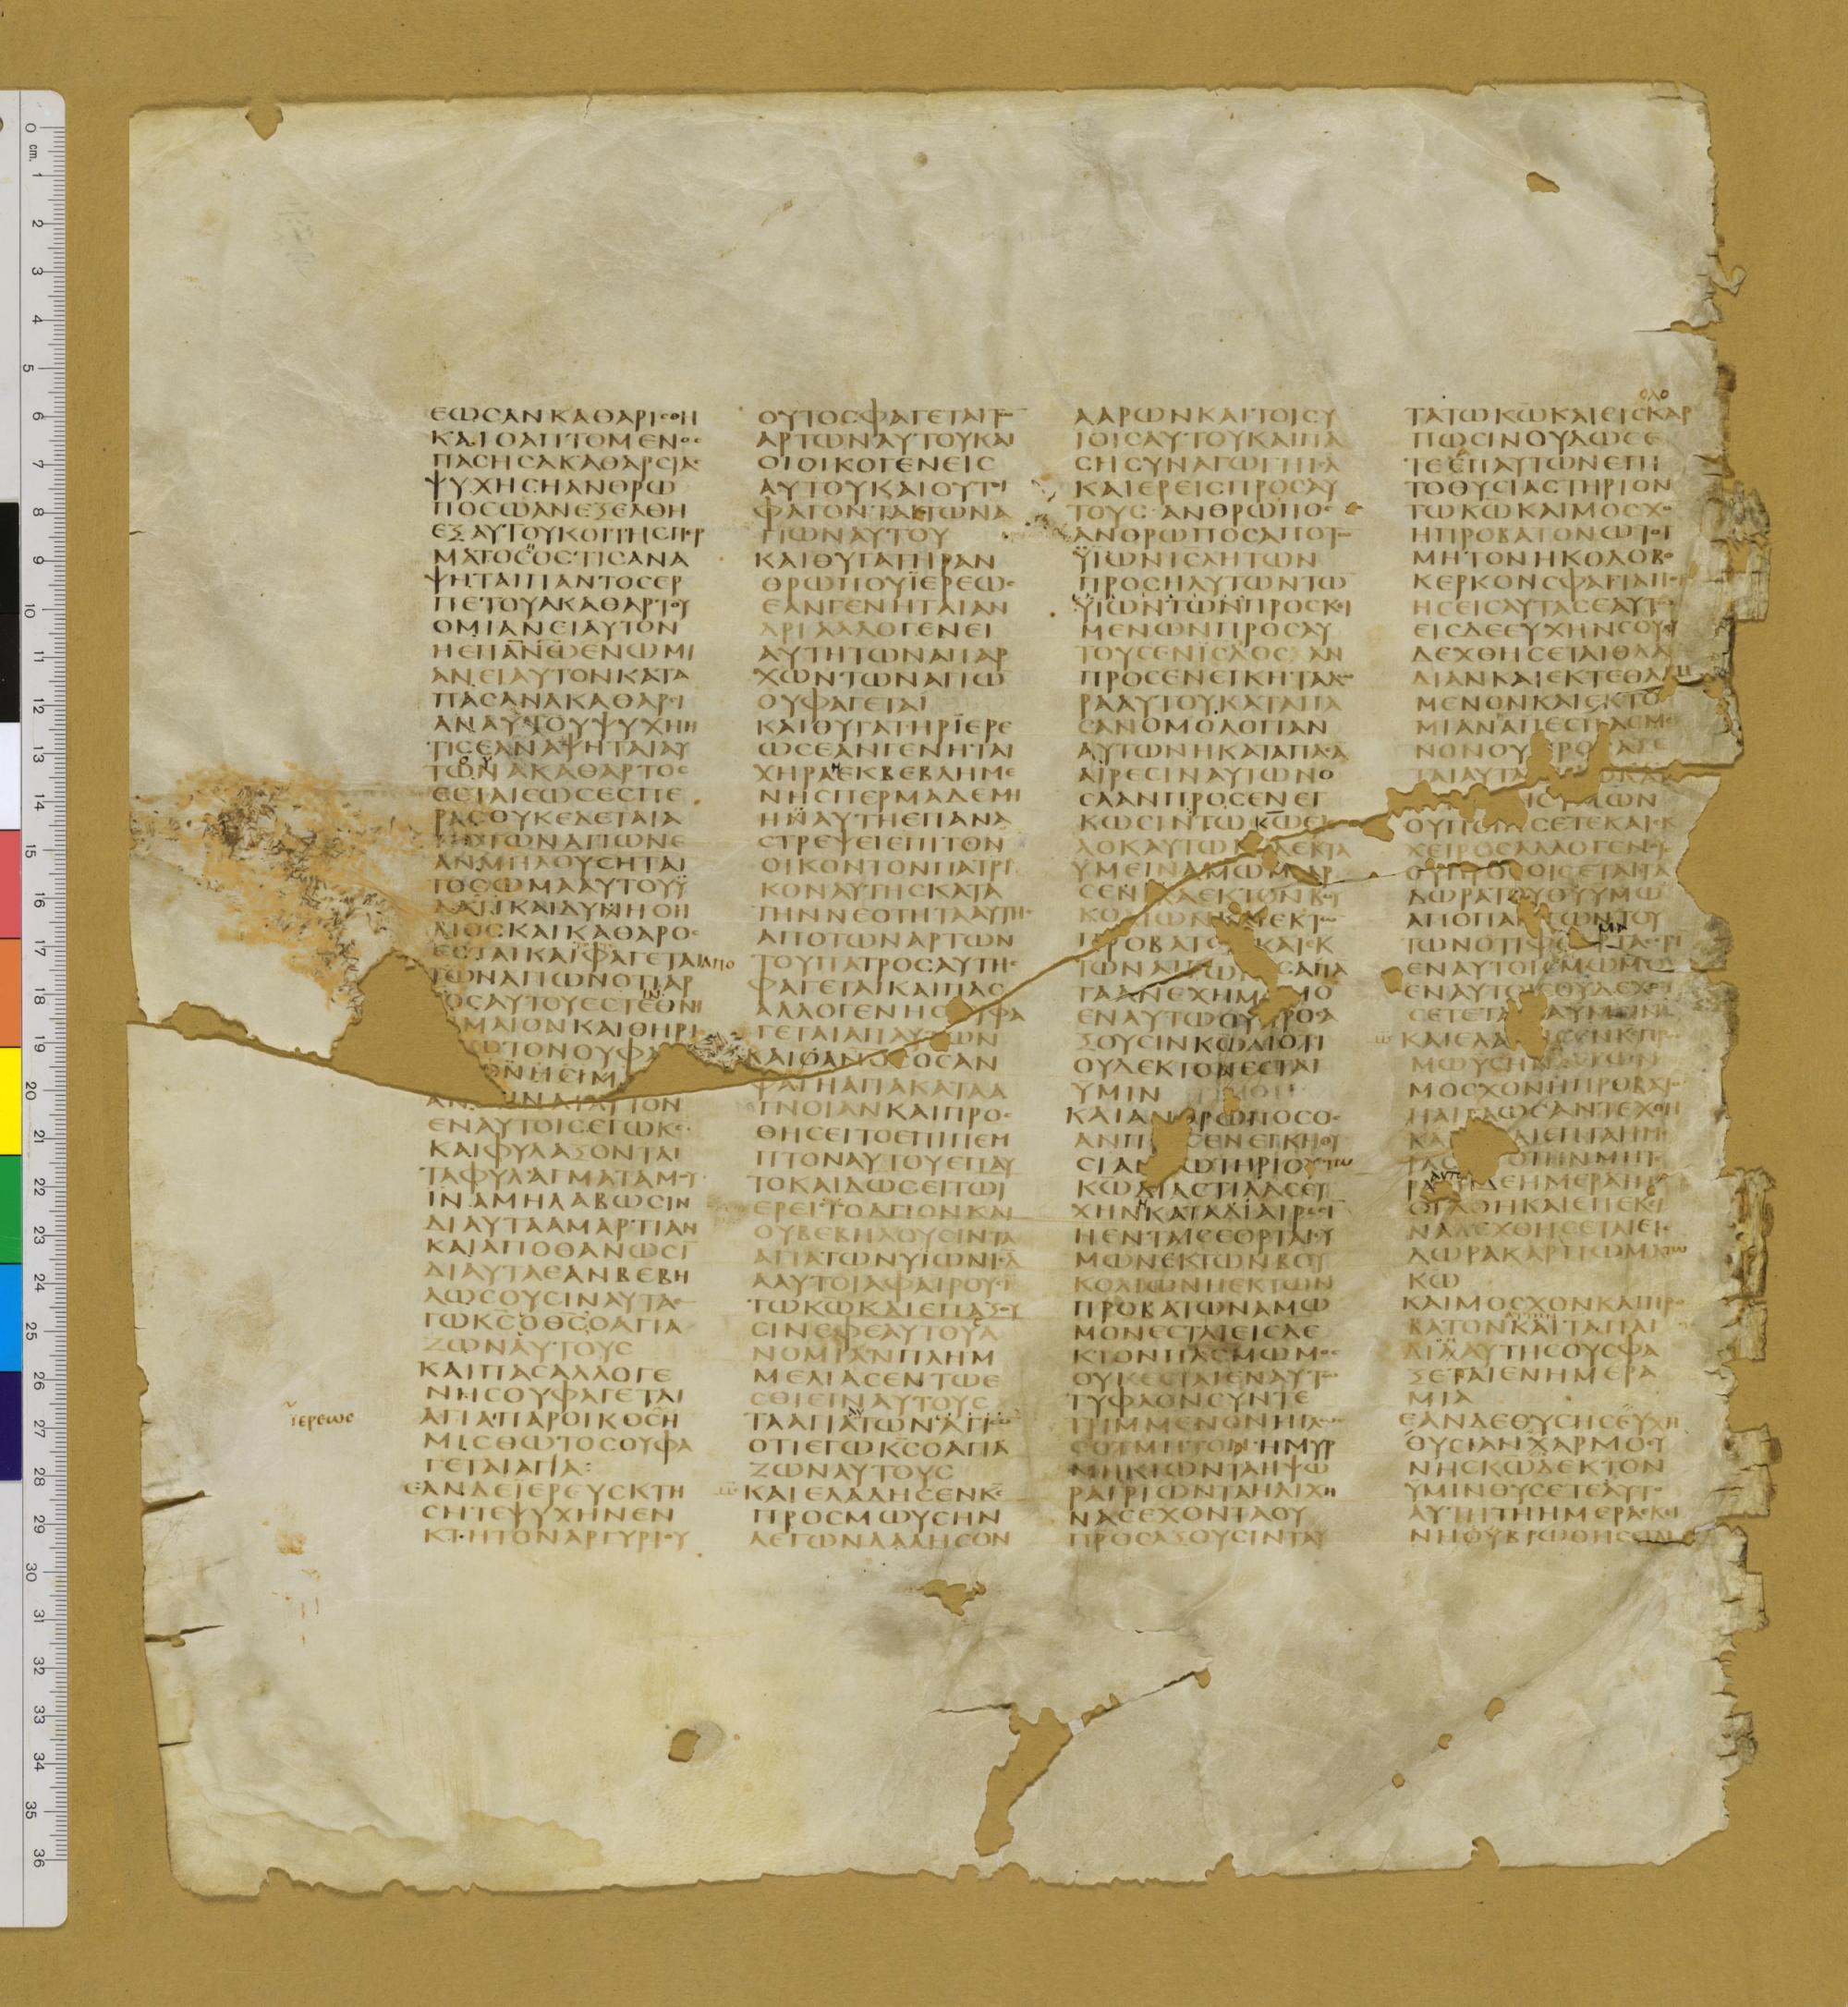 ΕΩCΑΝΚΑΘΑΡΙCΘΗ
ΚΑΙΟΑΠΤΟΜΕΝΟC
ΠΑCΗCΑΚΑΘΑΡCΙΑC
ΨΥΧΗCΗΑΝΘΡΩ
ΠΟCΩΑΝΕΞΕΛΘΗ
ΕΞΑΥΤΟΥΚΟΙΤΗCΠΕΡ
ΜΑΤΟCΟCΤΙCΑΝΑ
ΨΗΤΑΙΠΑΝΤΟCΕΡ
ΠΕΤΟΥΑΚΑΘΑΡΤΟΥ
ΟΜΙΑΝΕΙΑΥΤΟΝ
ΗΕΠΑΝΩΕΝΩΜΙ
ΑΝΕΙΑΥΤΟΝΚΑΤΑ
ΠΑCΑΝΑΚΑΘΑΡCΙ
ΑΝΑΥΤΟΥΨΥΧΗΗ
ΤΙCΕΑΝΑΨΗΤΑΙΑΥ
ΤΩΝΑΚΑΘΑΡΤΟC
ΕCΤΑΙΕΩCΕCΠΕ
ΡΑCΟΥΚΕΔΕΤΑΙΑ
ΠΟΤΩΝΑΓΙΩΝΕ
ΑΝΜΗΛΟΥCΗΤΑΙ
ΤΟCΩΜΑΑΥΤΟΥΫ
ΔΑΤΙΚΑΙΔΥΗΗΟΗ
ΛΙΟCΚΑΙΚΑΘΑΡΟC
ΕCΤΑΙΚΑΙΦΑΓΕΤΑΙΑΠΟ
ΤΩΝΑΓΙΩΝΟΤΙΑΡ
ΟCΑΥΤΟΥΕCΤΙΝ
ΜΑΙΟΝΚΑΙΘΗΡΙ
ΩΤΟΝΟΥΦΑ
ΕΝΑΥΤΟΙCΕΓΩΚC
ΚΑΙΦΥΛΑΞΟΝΤΑΙ
ΤΑΦΥΛΑΓΜΑΤΑΜΟΥ
ΙΝΑΜΗΛΑΒΩCΙΝ
ΔΙΑΥΤΑΑΜΑΡΤΙΑΝ
ΚΑΙΑΠΟΘΑΝΩCΙ
ΔΙΑΥΤΑΕΑΝΒΕΒΗ
ΛΩCΟΥCΙΝΑΥΤΑ
ΓΩΚCΟΘCΟΑΓΙΑ
ΖΩΝΑΥΤΟΥC
ΚΑΙΠΑCΑΛΛΟΓΕ
ΝΗCΟΥΦΑΓΕΤΑΙ
ΪΕΡΕΩC
ΑΓΙΑΠΑΡΟΙΚΟCΗ
ΜΙCΘΩΤΟCΟΥΦΑ
ΓΕΤΑΙΑΓΙΑ:
ΕΑΝΔΕΙΕΡΕΥCΚΤΗ
CΗΤΕΨΥΧΗΝΕΝ
ΚΤΗΤΟΝΑΡΓΥΡΙΟΥ
ΟΥΤΟCΦΑΓΕΤΑΙΤ
ΑΡΤΩΝΑΥΤΟΥΚΑΙ
ΟΙΟΙΚΟΓΕΝΕΙC
ΑΥΤΟΥΚΑΙΟΥΤΟΙ
ΦΑΓΟΝΤΑΙΤΩΝΑ
ΓΙΩΝΑΥΤΟΥ
ΚΑΙΘΥΓΑΤΗΡΑΝ
ΘΡΩΠΟΥΪΕΡΕΩC
ΕΑΝΓΕΝΗΤΑΙΑΝ
ΔΡΙΑΛΛΟΓΕΝΕΙ
ΑΥΤΗΤΩΝΑΠΑΡ
ΧΩΝΤΩΝΑΓΙΩ
ΟΥΦΑΓΕΤΑΙ
ΚΑΙΘΥΓΑΤΗΡΪΕΡΕ
ΩCΕΑΝΓΕΝΗΤΑΙ
ΧΗΡΑΗΕΚΒΕΒΛΗΜΕ
ΝΗCΠΕΡΜΑΔΕΜΗ
ΗΝΑΥΤΗΕΠΑΝΑ
CΤΡΕΨΕΙΕΠΙΤΟΝ
ΟΙΚΟΝΤΟΝΠΑΤΡΙ
ΚΟΝΑΥΤΗCΚΑΤΑ
ΤΗΝΝΕΟΤΗΤΑΑΥΤΗC
ΑΠΟΤΩΝΑΡΤΩΝ
ΤΟΥΠΑΤΡΟCΑΥΤΗC
ΦΑΓΕΤΑΙΚΑΙΠΑC
ΑΛΛΟΓΕΝΗCΟΥΦΑ
ΓΕΤΑΙΑΠΑΥΤΩΝ
ΚΑΙΑΝΘΡΩΠΟCΑΝ
ΦΑΓΗΑΓΙΑΚΑΤΑΑ
ΓΝΟΙΑΝΚΑΙΠΡΟC
ΘΗCΕΙΤΟΕΠΙΠΕΜ
ΠΤΟΝΑΥΤΟΥΕΠΑΥ
ΤΟΚΑΙΔΩCΕΙΤΩΙ
ΕΡΕΙΤΟΑΓΙΟΝΚΑΙ
ΟΥΒΕΒΗΛΟΥCΙΝΤΑ
ΑΓΙΑΤΩΝΥΙΩΝΙCΛ
ΑΑΥΤΟΙΑΦΑΙΡΟΥCΙ
ΤΩΚΩΚΑΙΕΠΑΞΟΥ
CΙΝΕΦΕΑΥΤΟΥCΑ
ΝΟΜΙΑΝΠΛΗΜ
ΜΕΛΙΑCΕΝΤΩΕ
CΘΙΕΙΝΑΥΤΟΥC
ΤΑΑΓΙΑΑΥΤΩΝ
ΟΤΙΕΓΩΚCΟΑΓΙΑ
ΖΩΝΑΥΤΟΥC
ΚΑΙΕΛΑΛΗCΕΝΚC
ΠΡΟCΜΩΥCΗΝ
ΛΕΓΩΝΛΑΛΗCΟΝ
ΑΑΡΩΝΚΑΙΤΟΙCΥ
ΙΟΙCΑΥΤΟΥΚΑΙΠΑ
CΗCΥΝΑΓΩΓΗΙCΛ
ΚΑΙΕΡΕΙCΠΡΟCΑΥ
ΤΟΥCΑΝΘΡΩΠΟC
ΑΝΘΡΩΠΟCΑΠΟΤ
ΫΙΩΝΙCΛΗΤΩΝ
ΠΡΟCΗΛΥΤΩΝΤΩ
ΫΙΩΝΤΩΝΠΡΟCΚΙ
ΜΕΝΩΝΠΡΟCΑΥ
ΤΟΥCΕΝΙCΛΟCΑΝ
ΠΡΟCΕΝΕΓΚΗΤΑΔΩ
ΡΑΑΥΤΟΥΚΑΤΑΠΑ
CΑΝΟΜΟΛΟΓΙΑΝ
ΑΥΤΩΝΗΚΑΤΑΠΑCΑ
ΑΙΡΕCΙΝΑΥΤΩΝΟ
CΑΑΝΠΡΟCΕΝΕΓ
ΚΩCΙΝΤΩΚΩΕΙC
ΛΟΚΑΥΤΩΜΑΔΕΚΤΑ
ΥΜΕΙΝΑΜΩΜΑΑΡ
CΕΝΙΚΑΕΚΤΩΝΒΟΥ
ΚΟΛΙΩΝΚΑΙΕΚΤΩ
ΠΡΟΒΑΤΩΝΚΑΙΕΚ
ΤΩΝΑΙΓΩΝΠΑCΑΠΑ
ΤΑΑΝΕΧΗΜΩΜΟ
ΕΝΑΥΤΩΟΥΠΡΟCΑ
ΞΟΥCΙΝΚΩΔΙΟΤΙ
ΟΥΔΕΚΤΟΝΕCΤΑΙ
ΥΜΙΝ
ΚΑΙΑΝΘΡΩΠΟCΟC
ΑΝΠΡΟCΕΝΕΓΚΗΘΥ
CΙΑΝCΩΤΗΡΙΟΥΤΩ
ΚΩΔΙΑCΤΙΛΑCΕΥ
ΧΗΝΚΑΤΑΑΙΡΕCΙ
ΗΕΝΤΑΙCΕΟΡΤΑΙCΥ
ΜΩΝΕΚΤΩΝΒΟΥ
ΚΟΛΙΩΝΗΕΚΤΩΝ
ΠΡΟΒΑΤΩΝΑΜΩ
ΜΟΝΕCΤΑΙΕΙCΔΕ
ΚΤΟΝΠΑCΜΩΜΟC
ΟΥΚΕCΤΑΙΕΝΑΥΤΩ
ΤΥΦΛΟΝCΥΝΤΕ
ΤΡΙΜΜΕΝΟΝΗΓΛΩC
CΟΤΜΗΤΟΝΗΜΥΡ
ΜΗΚΙΩΝΤΑΗΨΩ
ΡΑΓΡΙΩΝΤΑΗΛΙΧΗ
ΝΑCΕΧΟΝΤΑΟΥ
ΠΡΟCΑΞΟΥCΙΝΤΑΥ
ΟΛΟ
ΤΑΤΩΚΩΚΑΙΕΙCΚΑΡ
ΠΩCΙΝΟΥΔΩCΕ
ΤΕΕΠΑΥΤΩΝΕΠΙ
ΤΟΘΥCΙΑCΤΗΡΙΟΝ
ΤΩΚΩΚΑΙΜΟCΧΟ
ΗΠΡΟΒΑΤΟΝΩΤΟΤ
ΜΗΤΟΝΗΚΟΛΟΒΟ
ΚΕΡΚΟΝCΦΑΓΙΑΠΟΙ
ΗCΕΙCΑΥΤΑCΕΑΥΤΩ
ΕΙCΔΕΕΥΧΗΝCΟΥΟΥ
ΔΕΧΘΗCΕΤΑΙΘΛΑ
ΔΙΑΝΚΑΙΕΚΤΕΘΛΙΜ
ΜΕΝΟΝΚΑΙΕΚΤΟ
ΜΙΑΝΑΠΕCΠΑCΜΕ
ΝΟΝΟΥΠΡΟCΑΞΕ
ΟΥΠΟΙΗCΕΤΕΚΑΙΕΚ
ΧΕΙΡΟCΑΛΛΟΓΕΝΟΥC
ΟΥΠΡΟCΟΙCΕΤΑΙΤΑ
ΔΩΡΑΤΟΥΘΥΥΜΩ
ΑΠΟΠΑΝΤΩΝΤΟΥ
ΤΩΝΟΤΙΦΘΑΡΜΑΤΑ
ΕΝΑΥΤΟΙCΜΩΜΟ
ΕΝΑΥΤΟΙCΟΥΔΕΧΘΗ
CΕΤΕΤΑΥΤΑΥΜΙΝ
ΚΑΙΕΛΑΛΗCΕΝΚCΠΡ
ΜΩΥCΗΝΛΕΓΩΝ
ΜΟCΧΟΝΗΠΡΟΒΑΤ
ΗΑΙΓΑΩCΑΝΤΕΧΘΗ
ΚΑΙΕCΤΑΙΕΠΤΑΗΜΕ
ΡΑCΥΠΟΤΗΝΜΗΤ
ΡΑΤΗΔΕΗΜΕΡΑΤΗ
ΟΓΔΟΗΚΑΙΕΠΕΚΙ
ΝΑΔΕΧΘΗCΕΤΑΙΕΙC
ΔΩΡΑΚΑΡΠΩΜΑΤΩ
ΚΩ
ΚΑΙΜΟCΧΟΝΚΑΙΠΡΟ
ΒΑΤΟΝΚΑΙΤΑΠΑΙ
ΔΙΑΑΥΤΗCΟΥCΦΑ
ΞΕΤΑΙΕΝΗΜΕΡΑ
ΜΙΑ
ΕΑΝΔΕΘΥCΗCΕΥΧΗ
ΘΥCΙΑΝΧΑΡΜΟCΥ
ΝΗCΚΩΔΕΚΤΟΝ
ΥΜΙΝΘΥCΕΤΕΑΥΤΟ
ΑΥΤΗΤΗΗΜΕΡΑΕΚΙ
ΝΗΟΥΒΡΩΘΗCΕΤΑΙ